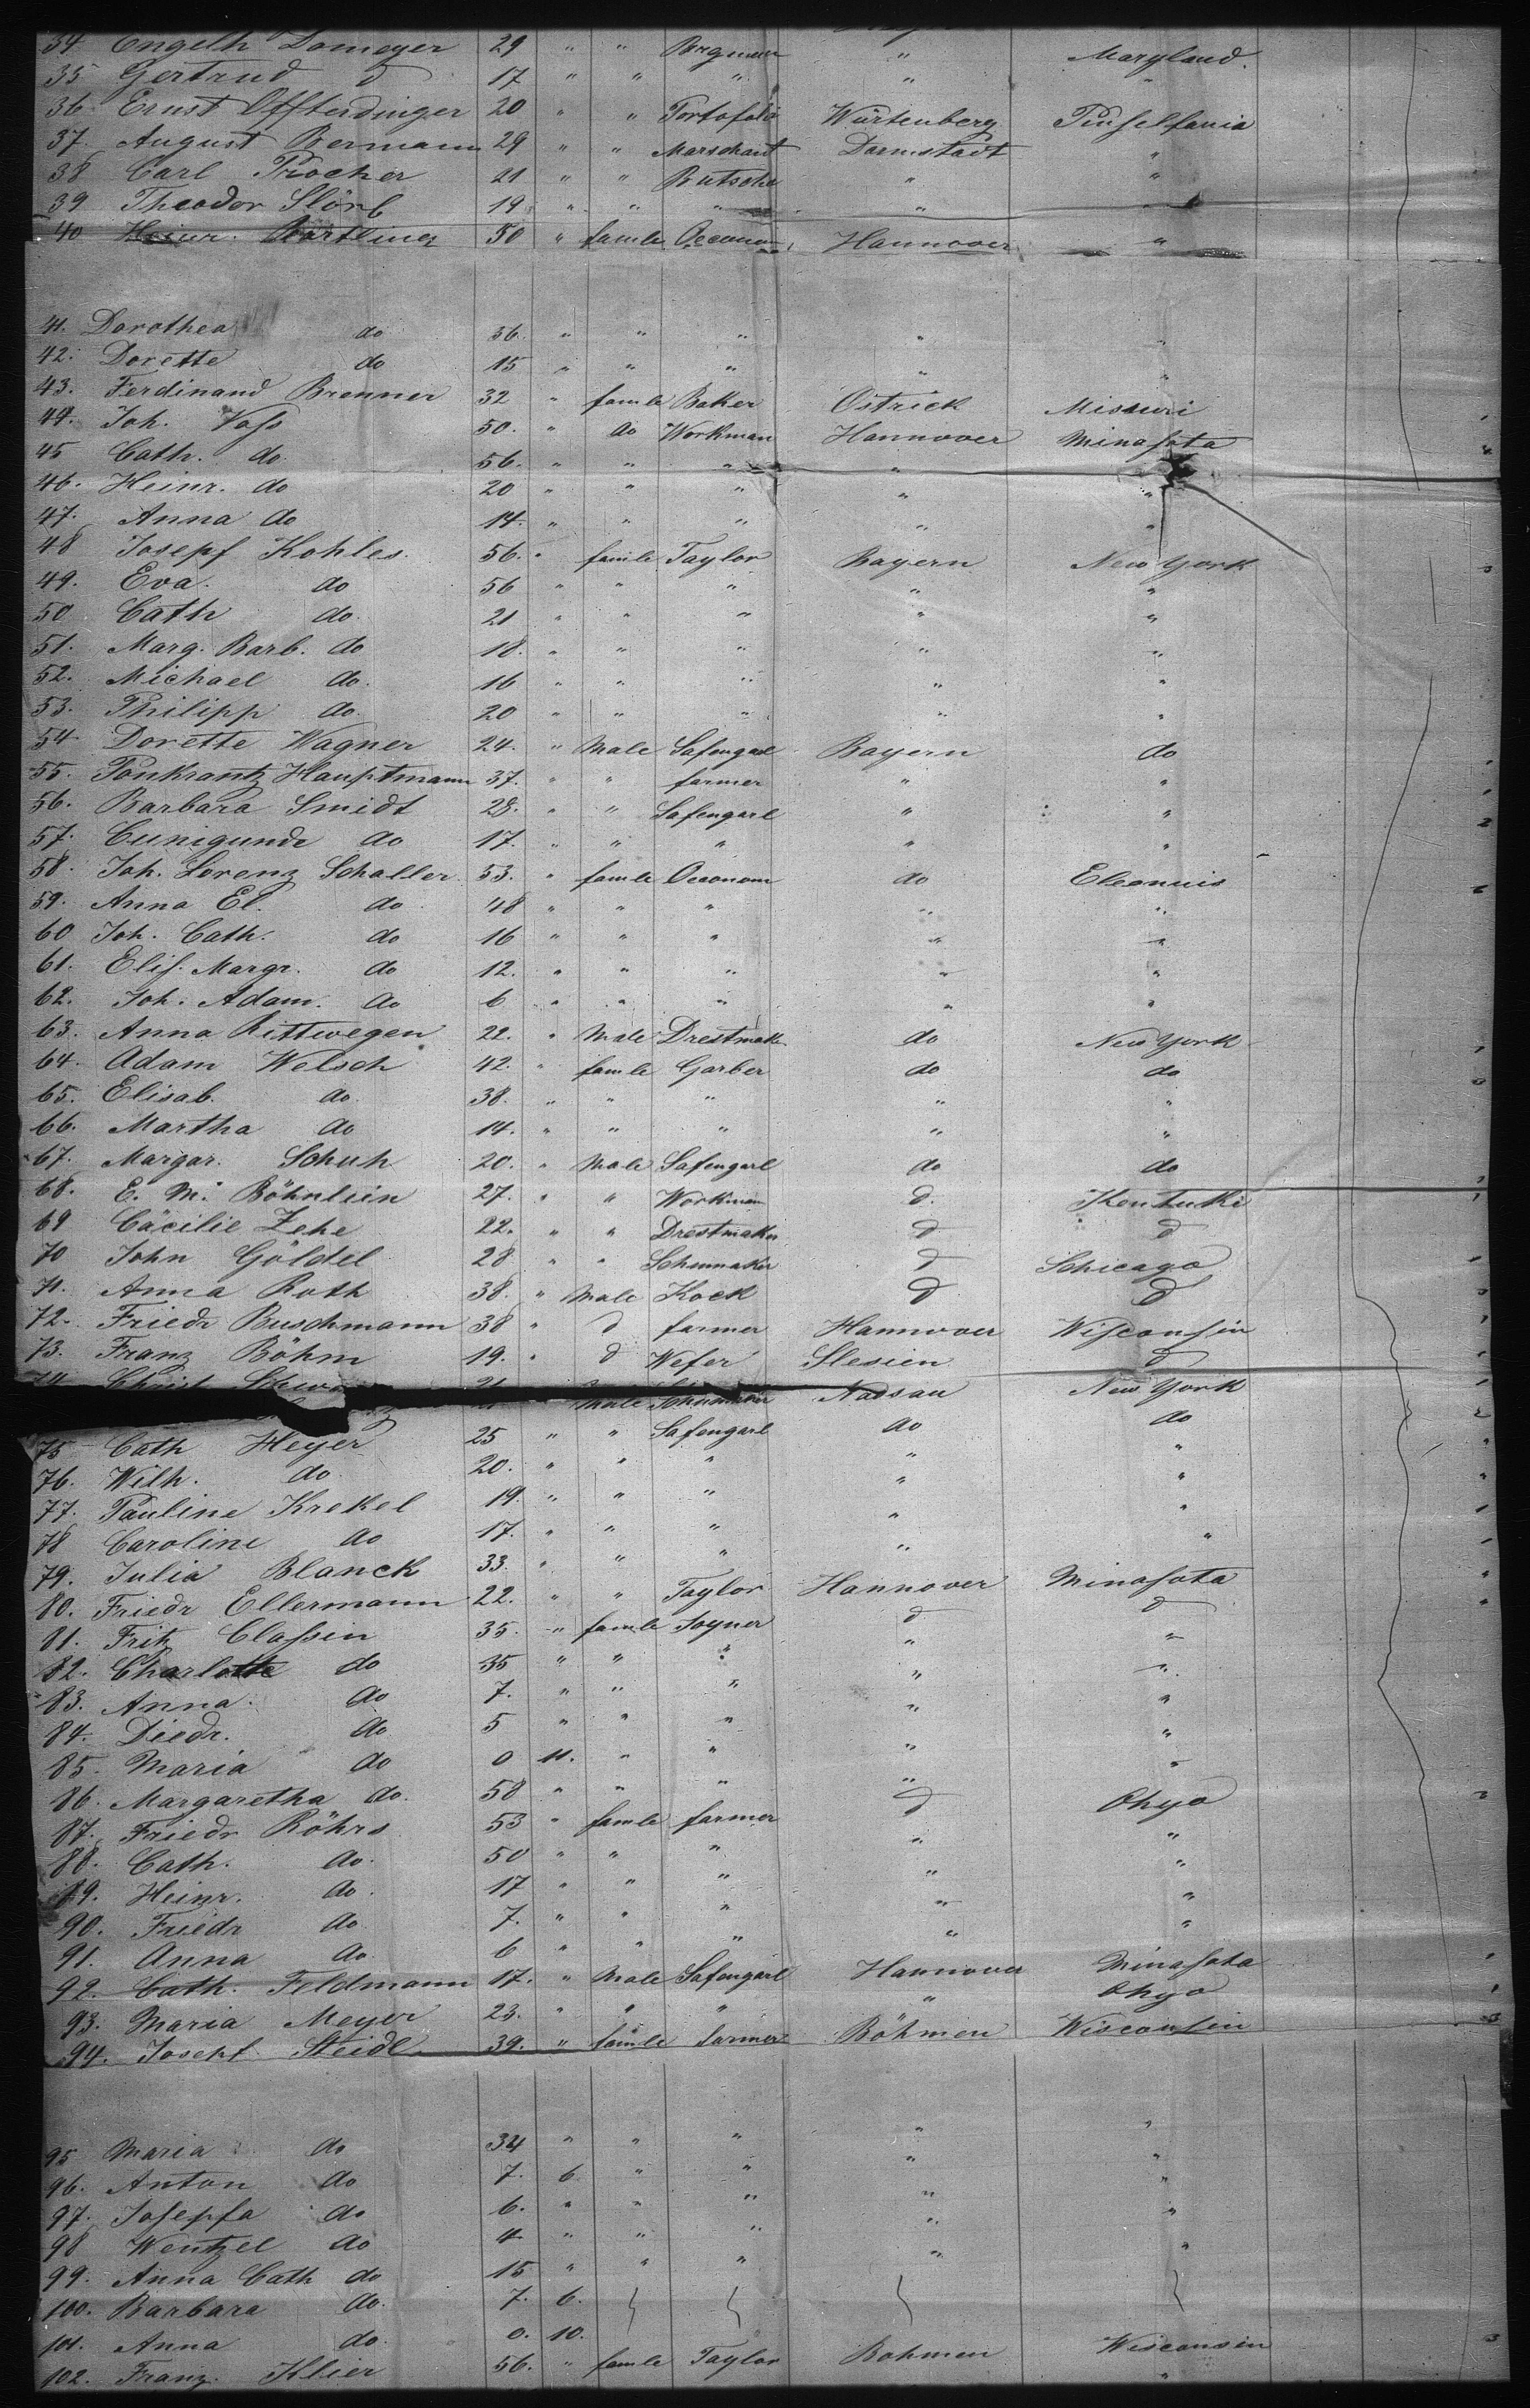 34 Engelh Lameyer 29 " " Bergman " Maryland.
35 Gertrud d 17 " " " " "
36 Ernst Offterdinger 20 " " Portofolio Würtenberg Pinselfania
37. August Bermann 29 " " Marschant Darmstadt "
38 Carl Procher 21 " " Butsche " "
39 Theodor Störb 19 " " " " "
40 Heinr. Bartling 50 " famle Oeconom Hannover "
41. Dorothea do 36. " " " " "
42. Dorette do 15 " " " " "
43. Ferdinand Brenner 32 " famle Baker Ostrick Misouri
44. Joh. Voss 50. " do Workman Hannover Minasota
45 Cath. do 56. " " " " "
46. Heinr. do 20 " " " " "
47. Anna do 14. " " " " "
48 Josepf Kohles. 56. " famle Taylor Bayern New York
49. Eva. do 56 " " " " "
50 Cath do. 21 " " " " "
51. Marg. Barb. do 18. " " " " "
52. Michael do. 16 " " " " "
53. Philipp do. 20 " " " " "
54 Dorette Wagner 24. " Male Safengarl Bayern do
55. Pankrantz Hauptmann 37. " " farmer " "
56. Barbara Smidt 28. " " Safengarl " "
57. Cunigunde do 17. " " " " "
58. Joh. Lorenz Schaller 53. " famle Oeconom do Eleanuis
59. Anna El. do 48 " " " " "
60 Joh. Cath. do 16 " " " " "
61. Elis. Margr. do 12. " " " " "
62. Joh. Adam. do 6 " " " " "
63. Anna Rittwegen 22. " Male Drestmak do New York
64. Adam Welsch 42. " famle Garber do do
65. Elisab. do 38. " " " " "
66. Martha do 14. " " " " "
67. Margar. Schuh 20. " Male Safengarl do do
68. E. M. Böhnlein 27. " " Workman d. Kentuki
69 Cäcilie Zehe 22. " " Drestmaker d d
70 John Göldel 28 " " Schumaker d Schicago
71. Anna Roth 38. " Male Kock d d
72. Friedr Buschmann 38 " d farmer Hannover Wisconsin
73. Franz Böhm 19. " d Wefer Slesien d
74 Christ 21 " Male Schumaker Nassau New York
75 Cath Heyer 25 " " Safengarl do do
76. Wilh. do 20. " " " " "
77. Pauline Krekel 19. " " " " "
78 Caroline do 17. " " " " "
79. Julia Blanck 33. " " " " "
80. Friedr Ellermann 22. " " Taylor Hannover Minasota
81. Fritz Classin 35. " famle Joyner d d
82. Charlotte do 35 " " " " "
83. Anna. do 7. " " " " "
84. Diedr. do 5 " " " " "
85. Maria do 0 11. " " " "
86. Margaretha do. 58 " " " " "
87. Friedr Röhrs 53 " famle farmer d Ohyo
88. Cath. do. 50 " " " " "
89. Heinr. do. 17 " " " " "
90. Friedr do 7. " " " " "
91. Anna do 6 " " " " "
92. Cath. Feldmann 17. " Male Safengarl Hannover Minasota
93. Maria Meyer 23. " " " " Ohyo
94. Joseph Steidl 39. " famle farmer Böhmen Wisconsin
95 Maria do 34 " " " " "
96. Anton do 7. 6 " " " "
97. Josepfa do 6. " " " " "
98 Wentzel do 4. " " " " "
99. Anna Cath do 15 " " " " "
100. Barbara do. 7. 6.
101. Anna do. 0. 10.
102. Franz. Klier 56. " famle Taylor Bohmen Wisconsin